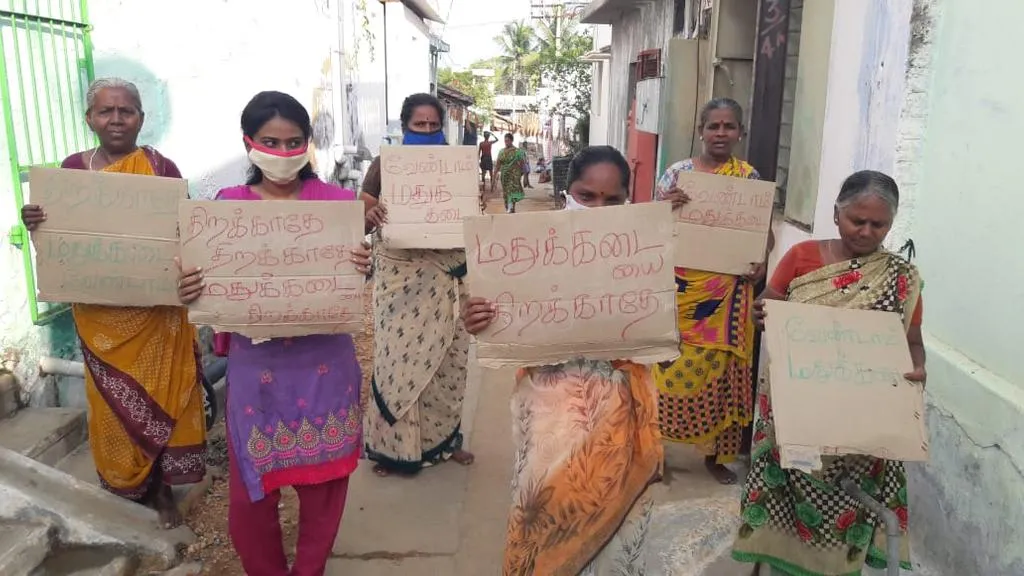 திறக்காதே
மதுக்கடை
வேண்டாம்
திறக்காதே
திறக்காதே
மதுக்கடை
திறக்காதே
வேண்டாம்
மதுக்
கடை
மதுக்கடை
யை
திறக்காதே
வேண்டாம்
மதுக்கடை
வேண்டாம்
மதுக்கடை